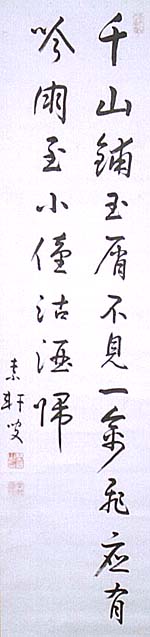 千山鋪玉屑不見一禽飛應有
吟朋至小僮沽酒帰
素軒叟